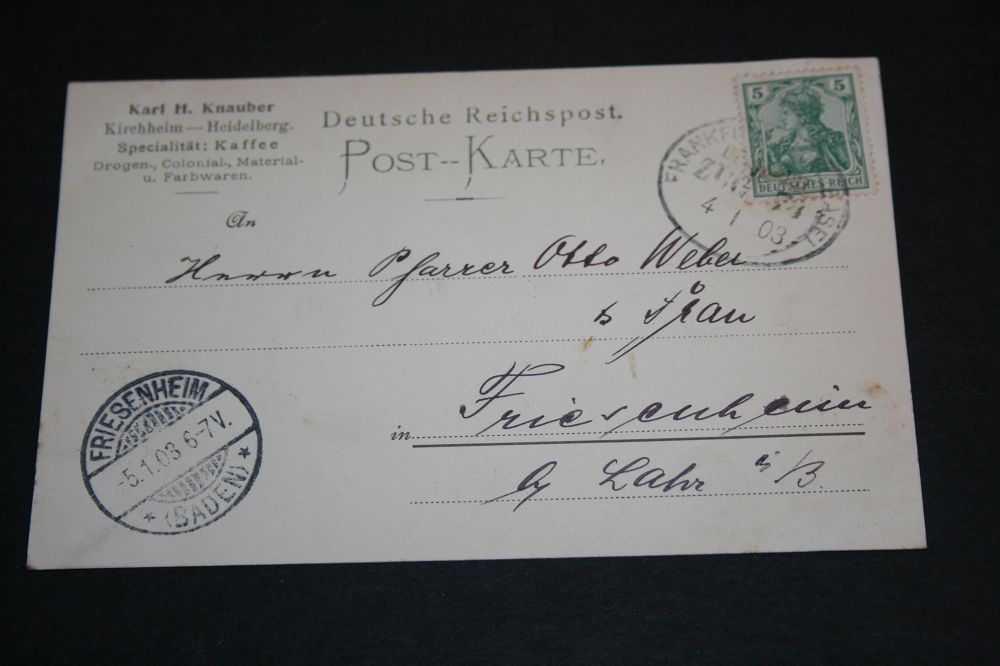 Karl H. Knauber
Kirchheim — Heidelberg.
Specialität: Kaffee
Drogen-, Colonial-, Material-
u. Farbwaren.
Deutsche Reichspost.
POST--KARTE.
5 5
DEUTSCHES REICH
ZUG
4 1 03
An
Herrn Pfarrer Otto Weber
& Frau
in Friesenheim
Lahr i/B.
FRIESENHEIM
-5.1.03 6-7V.
* (BADEN) *